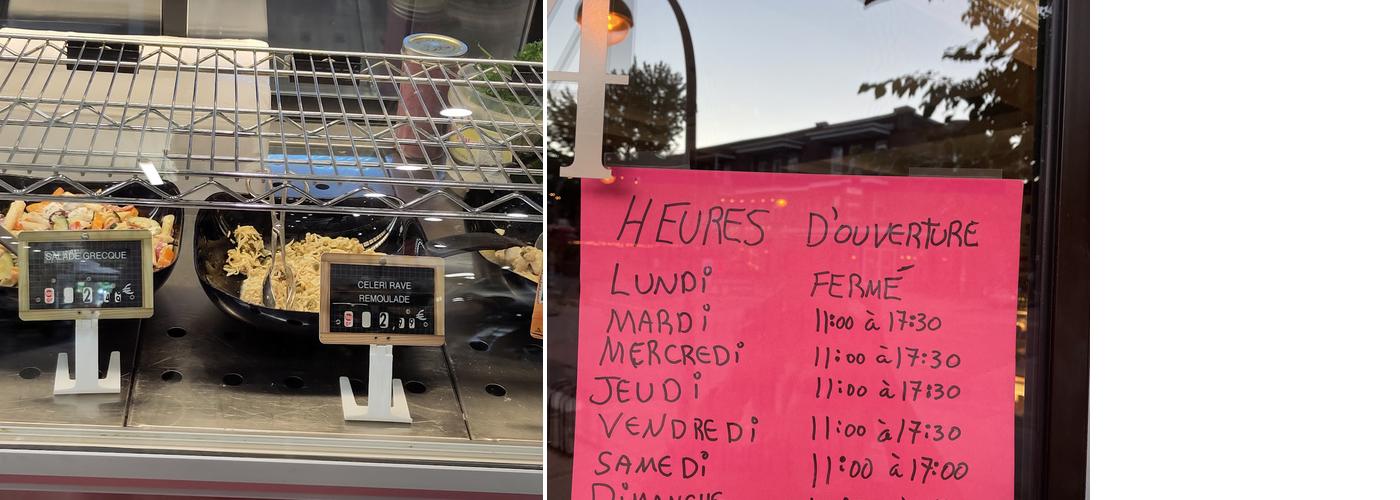 SALADE GRECQUE
€
CELERI RAVE
REMOULADE
2,99 €
HEURES D'OUVERTURE
LUNDI FERMÉ
MARDI 11:00 à 17:30
MERCREDI 11:00 à 17:30
JEUDI 11:00 à 17:30
VENDREDI 11:00 à 17:30
SAMEDI 11:00 à 17:00
DIMANCHE